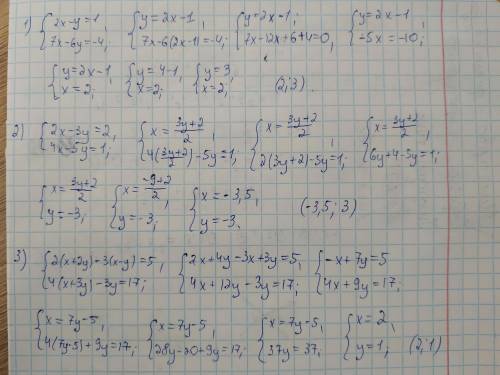 1) {2x-y=1, 7x-6y=-4; {y=2x-1, 7x-6(2x-1)=-4; {y=2x-1; 7x-12x+6+4=0, {y=2x-1, -5x=-10;
{y=2x-1, x=2; {y=4-1, x=2; {y=3, x=2; (2;3).
2) {2x-3y=2, 4x-5y=1; {x=(3y+2)/2, 4((3y+2)/2)-5y=1; {x=(3y+2)/2, 2(3y+2)-5y=1; {x=(3y+2)/2, 6y+4-5y=1;
{x=(3y+2)/2, y=-3, {x=(-9+2)/2, y=-3; {x=-3,5, y=-3. (-3,5; 3)
3) {2(x+2y)-3(x-y)=5, 4(x+3y)-3y=17; {2x+4y-3x+3y=5, 4x+12y-3y=17; {-x+7y=5 4x+9y=17;
{x=7y-5, 4(7y-5)+9y=17, {x=7y-5, 28y-20+9y=17; {x=7y-5, 37y=37, {x=2, y=1; (2;1)